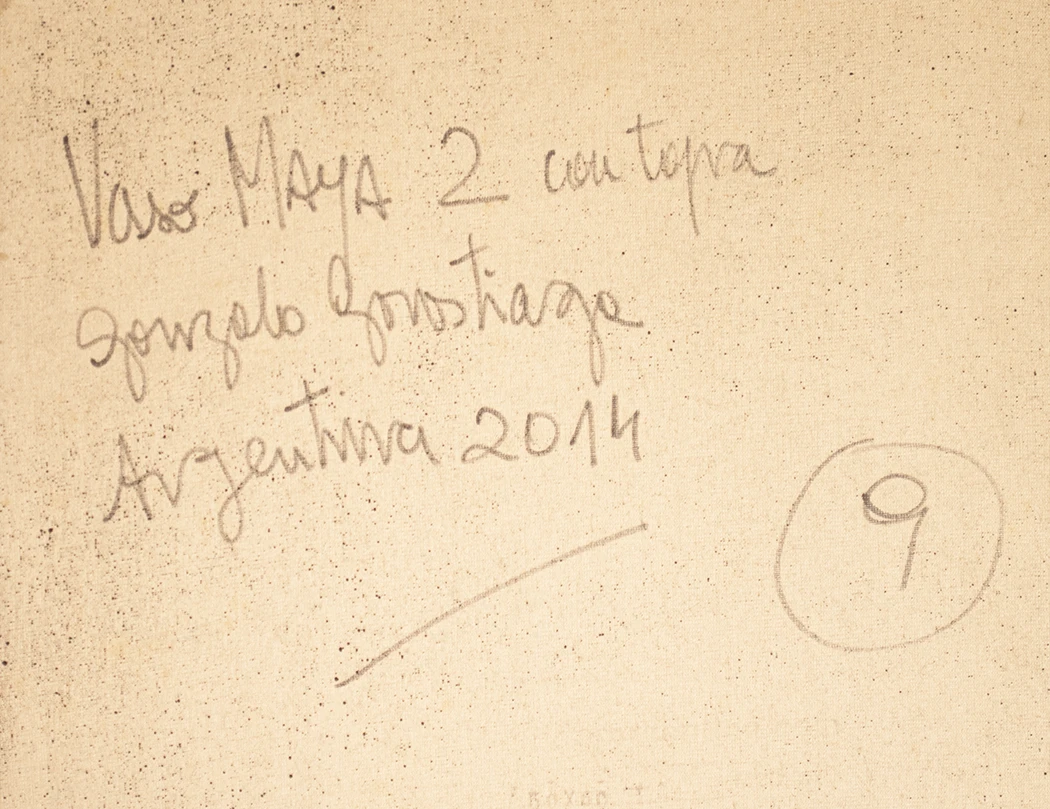 Vaso MAYA 2 con
Gonzalo Gorostiaga
Argentina 2014
9